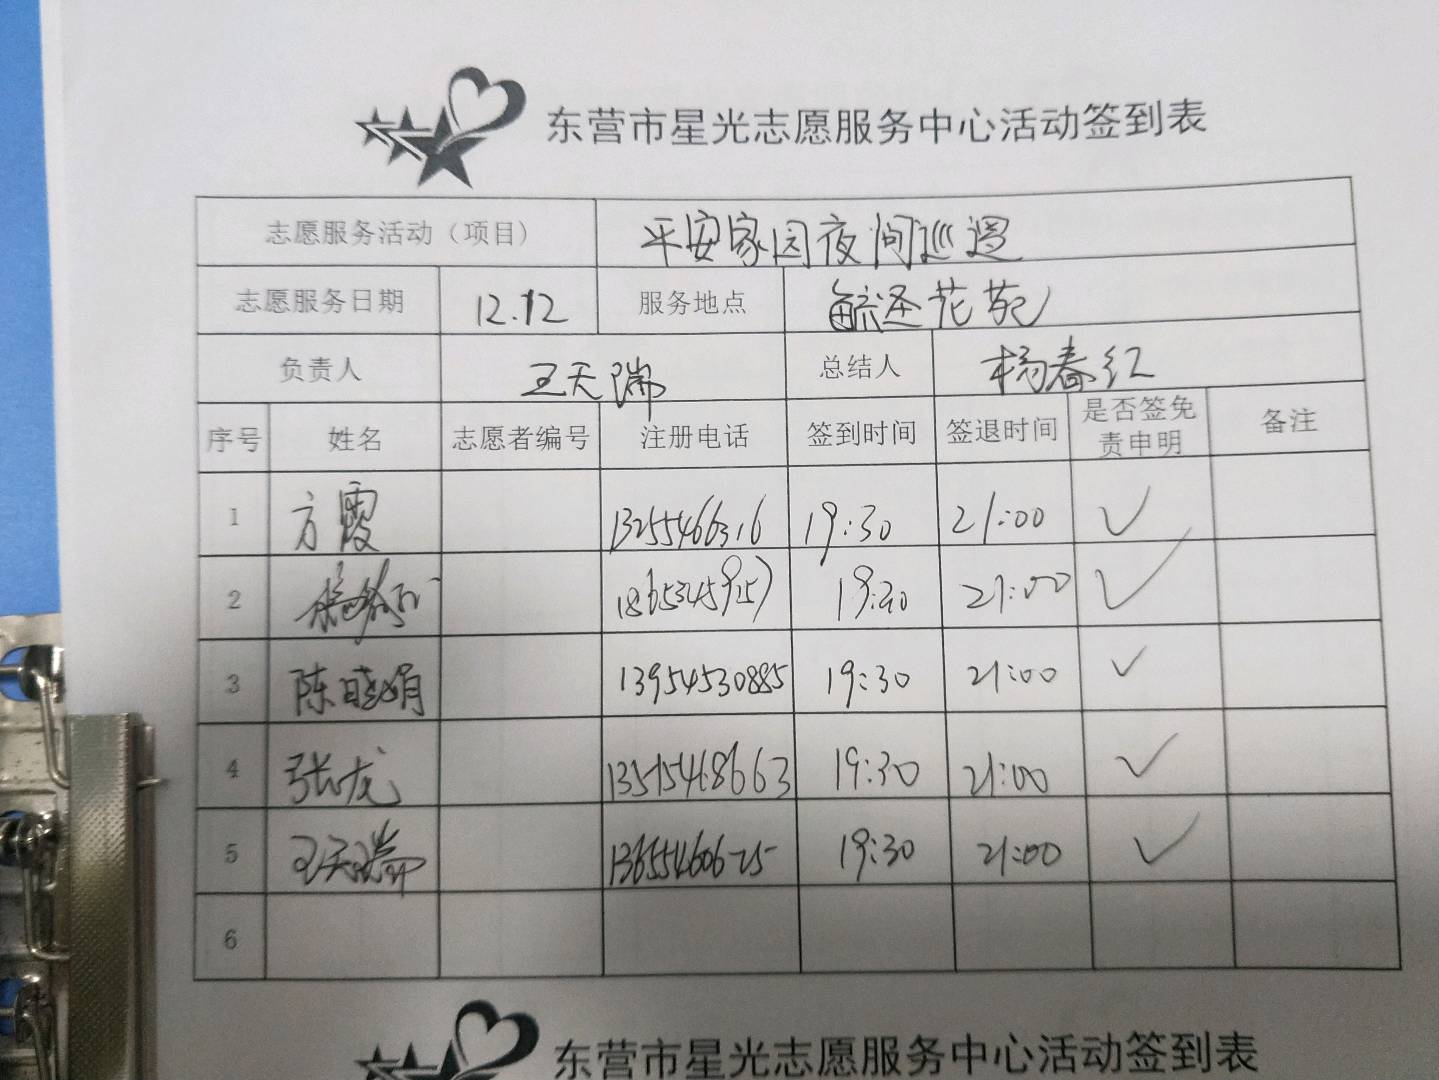 东营市星光志愿服务中心活动签到表
志愿服务活动（项目） 平安家园夜间巡逻
志愿服务日期 12.12 服务地点 毓圣花苑
负责人 王天瑞 总结人 杨春红
序号 姓名 志愿者编号 注册电话 签到时间 签退时间 是否签免责申明 备注
1 方霞 13255466316 19:30 21:00 ✓
2 19:30 21:00 ✓
3 陈晓娟 13954530885 19:30 21:00 ✓
4 张龙 13515468663 19:30 21:00 ✓
5 王天瑞 13655460625 19:30 21:00 ✓
6
东营市星光志愿服务中心活动签到表